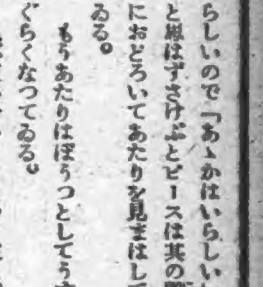 らしいので「あゝかはいらしい
と思はずさけぶとピースは其の
におどろいてあたりを見まはして
ゐる。
もうあたりはぼうつとしてう
ぐらくなつてゐる。